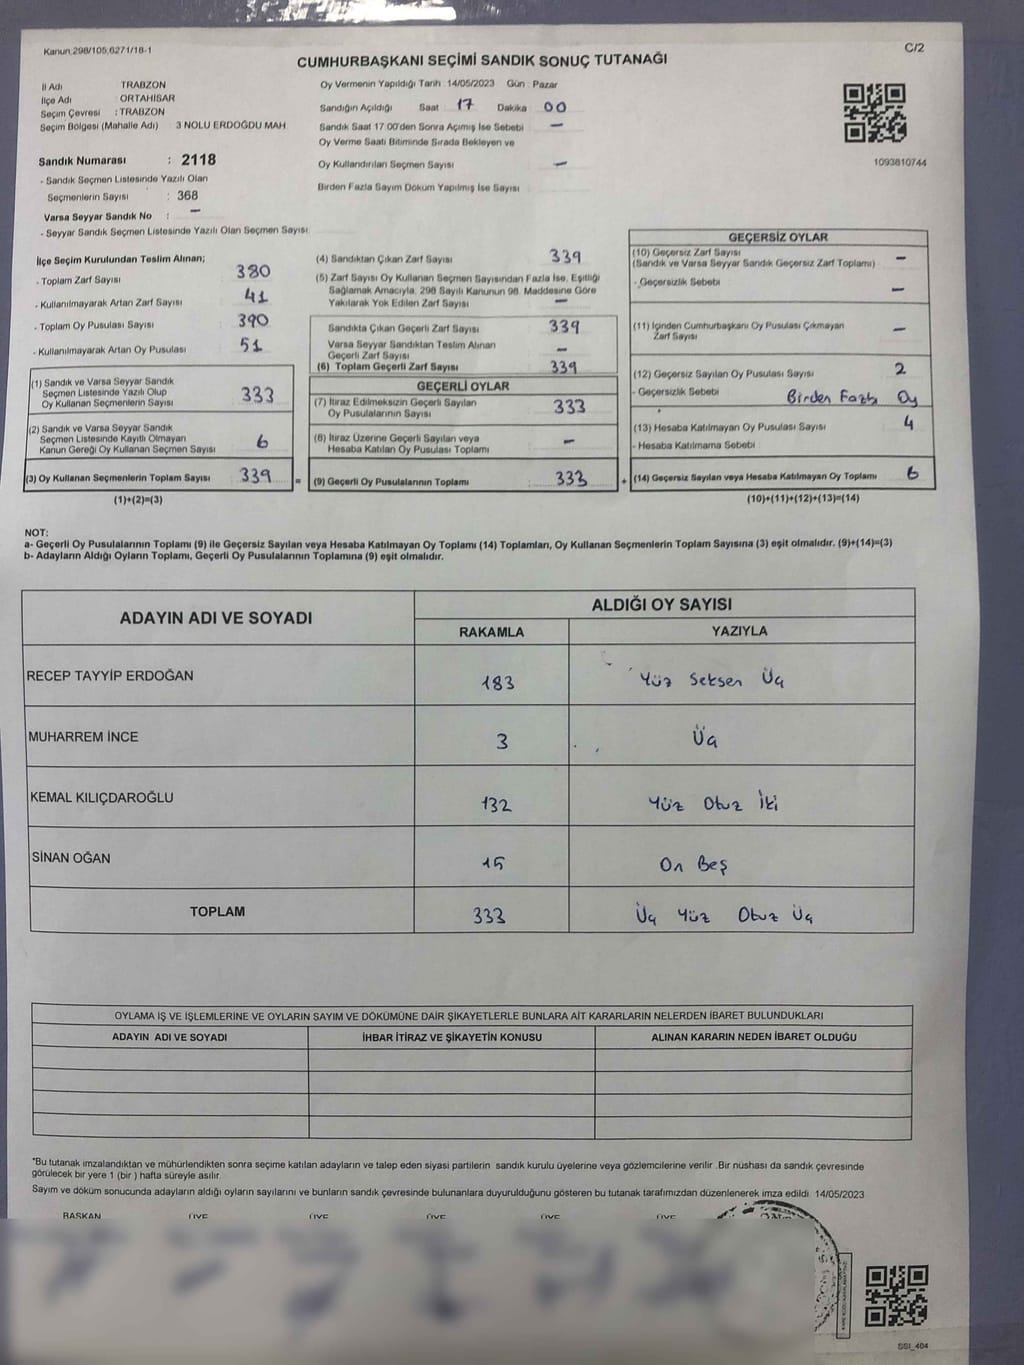 Kanun 298/105,6271/18-1
C/2
CUMHURBAŞKANI SEÇİMİ SANDIK SONUÇ TUTANAĞI
İl Adı TRABZON
İlçe Adı ORTAHİSAR
Seçim Çevresi : TRABZON
Seçim Bölgesi (Mahalle Adı) 3 NOLU ERDOĞDU MAH
Sandık Numarası : 2118
- Sandık Seçmen Listesinde Yazılı Olan
Seçmenlerin Sayısı : 368
Varsa Seyyar Sandık No : –
- Seyyar Sandık Seçmen Listesinde Yazılı Olan Seçmen Sayısı
Oy Vermenin Yapıldığı Tarih 14/05/2023 Gün : Pazar
Sandığın Açıldığı Saat 17 Dakika 00
Sandık Saat 17:00'den Sonra Açılmış İse Sebebi –
Oy Verme Saati Bitiminde Sırada Bekleyen ve
Oy Kullandırılan Seçmen Sayısı –
Birden Fazla Sayım Döküm Yapılmış İse Sayısı
1093810744
İlçe Seçim Kurulundan Teslim Alınan;
- Toplam Zarf Sayısı 380
- Kullanılmayarak Artan Zarf Sayısı 41
- Toplam Oy Pusulası Sayısı 390
- Kullanılmayarak Artan Oy Pusulası 51
(1) Sandık ve Varsa Seyyar Sandık
Seçmen Listesinde Yazılı Olup
Oy Kullanan Seçmenlerin Sayısı 333
(2) Sandık ve Varsa Seyyar Sandık
Seçmen Listesinde Kayıtlı Olmayan
Kanun Gereği Oy Kullanan Seçmen Sayısı 6
(3) Oy Kullanan Seçmenlerin Toplam Sayısı 339 =
(1)+(2)=(3)
(4) Sandıktan Çıkan Zarf Sayısı 339
(5) Zarf Sayısı Oy Kullanan Seçmen Sayısından Fazla İse, Eşitliği
Sağlamak Amacıyla, 298 Sayılı Kanunun 98. Maddesine Göre
Yakılarak Yok Edilen Zarf Sayısı –
Sandıkta Çıkan Geçerli Zarf Sayısı 339
Varsa Seyyar Sandıktan Teslim Alınan
Geçerli Zarf Sayısı –
(6) Toplam Geçerli Zarf Sayısı 339
GEÇERLİ OYLAR
(7) İtiraz Edilmeksizin Geçerli Sayılan
Oy Pusulalarının Sayısı 333
(8) İtiraz Üzerine Geçerli Sayılan veya
Hesaba Katılan Oy Pusulası Toplamı –
(9) Geçerli Oy Pusulalarının Toplamı 333 +
GEÇERSİZ OYLAR
(10) Geçersiz Zarf Sayısı
(Sandık ve Varsa Seyyar Sandık Geçersiz Zarf Toplamı) –
- Geçersizlik Sebebi –
(11) İçinden Cumhurbaşkanı Oy Pusulası Çıkmayan
Zarf Sayısı –
(12) Geçersiz Sayılan Oy Pusulası Sayısı 2
- Geçersizlik Sebebi Birden Fazla Oy
(13) Hesaba Katılmayan Oy Pusulası Sayısı 4
- Hesaba Katılmama Sebebi
(14) Geçersiz Sayılan veya Hesaba Katılmayan Oy Toplamı 6
(10)+(11)+(12)+(13)=(14)
NOT:
a- Geçerli Oy Pusulalarının Toplamı (9) ile Geçersiz Sayılan veya Hesaba Katılmayan Oy Toplamı (14) Toplamları, Oy Kullanan Seçmenlerin Toplam Sayısına (3) eşit olmalıdır. (9)+(14)=(3)
b- Adayların Aldığı Oyların Toplamı, Geçerli Oy Pusulalarının Toplamına (9) eşit olmalıdır.
ADAYIN ADI VE SOYADI
ALDIĞI OY SAYISI
RAKAMLA YAZIYLA
RECEP TAYYİP ERDOĞAN 183 Yüz Seksen Üç
MUHARREM İNCE 3 Üç
KEMAL KILIÇDAROĞLU 132 Yüz Otuz İki
SİNAN OĞAN 15 On Beş
TOPLAM 333 Üç Yüz Otuz Üç
OYLAMA İŞ VE İŞLEMLERİNE VE OYLARIN SAYIM VE DÖKÜMÜNE DAİR ŞİKAYETLERLE BUNLARA AİT KARARLARIN NELERDEN İBARET BULUNDUKLARI
ADAYIN ADI VE SOYADI İHBAR İTİRAZ VE ŞİKAYETİN KONUSU ALINAN KARARIN NEDEN İBARET OLDUĞU
*Bu tutanak imzalandıktan ve mühürlendikten sonra seçime katılan adayların ve talep eden siyasi partilerin sandık kurulu üyelerine veya gözlemcilerine verilir .Bir nüshası da sandık çevresinde
görülecek bir yere 1 (bir ) hafta süreyle asılır.
Sayım ve döküm sonucunda adayların aldığı oyların sayılarını ve bunların sandık çevresinde bulunanlara duyurulduğunu gösteren bu tutanak tarafımızdan düzenlenerek imza edildi 14/05/2023
BAŞKAN ÜYE ÜYE ÜYE ÜYE ÜYE
SSI_404